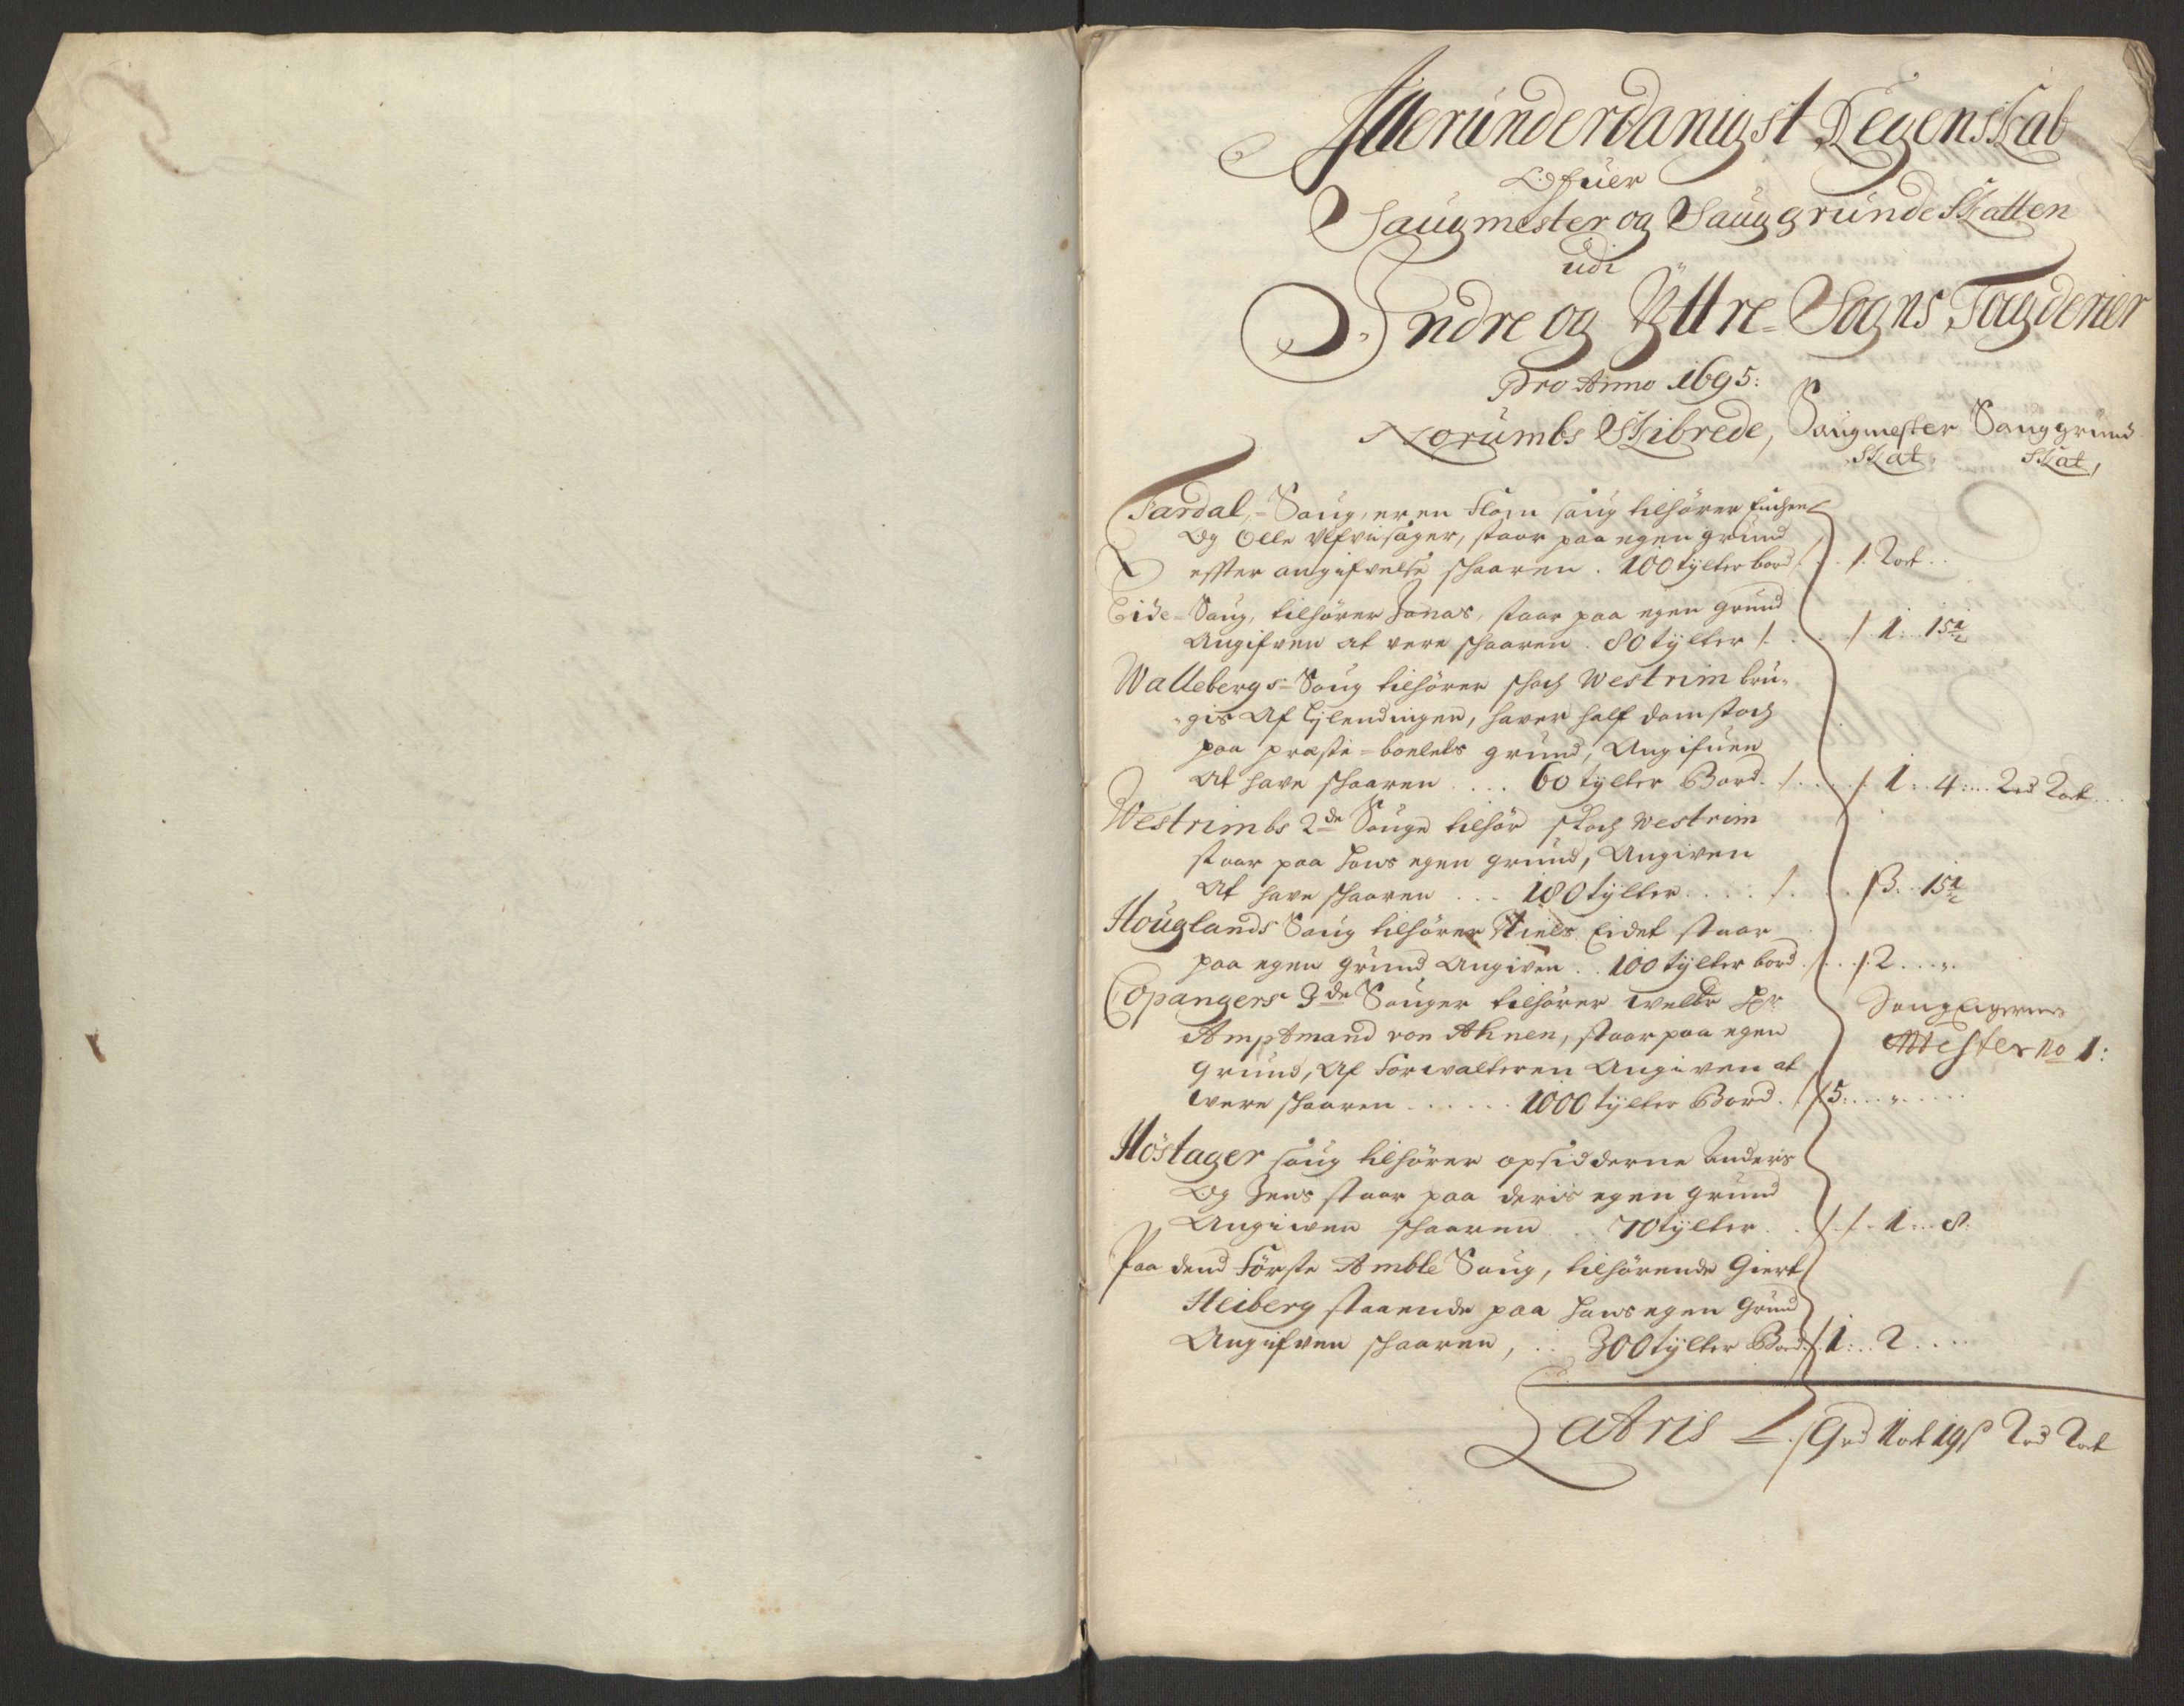 Allerunderdanigst Regenskab
Ofuer
Saugmester og Sauggrunde Skatten
udi
Indre og Yttre Sogns Fogderier
Pro Anno 1695:
Norumbs Skibrede, Saugmester Sauggrund
Skat. Skat,
Fardal,- Saug, er en Flom saug tilhører
Og Olle, staar paa egen grund
efter angifvelse schaaren . 100 tylter bord /. . . /. 2 ort . .
Eide- Saug, tilhører Jonas, staar paa egen grund
Angifven at vere schaaren . 80 tylter /. . . /. 1: 15½
Walleberg s- Saug tilhører Westrim bru-
-gis Af, haver half damstoch
paa præste-boelets grund, Angifuen
At have schaaren . . . 60 tylter Bord. /. . . . /. 1: 4: . . . 2rd 2ort . . .
Westrimbs 2de Sauge tilhør Westrim
staar paa hans egen grund, Angiven
At have schaaren . . . 180 tylter . . . . . /. . . /3. . 15½
Houglands Saug tilhører Niels Eidet staar
paa egen grund Angiven . . 100 tylter bord . /. . . /. 2 . . . „.
Copangers 3de Sauger tilhører welbr Hr
Amptmand von Ahnen, staar paa egen
grund, Af Forvalteren Angiven at
were schaaren . . . . . . 1000 tylter Bord. /. /5: . . . „ . . . . .
Saug Eigernes
Attester No 1:
Høstager saug tilhører opsidderne Anders
Og Jens staar paa deris egen grund
Angiven schaaren . . 70 tylter . . /. /. 1: . . 8:
Paa dend Første Amble Saug, tilhørende Giert
Heiberg staaende paa hans egen Grund
Angifven schaaren, . . 300 tylter Bord /. 1: . . 2 . . . .
Lateris /. 9rd 1ort 19s 2rd 2ort